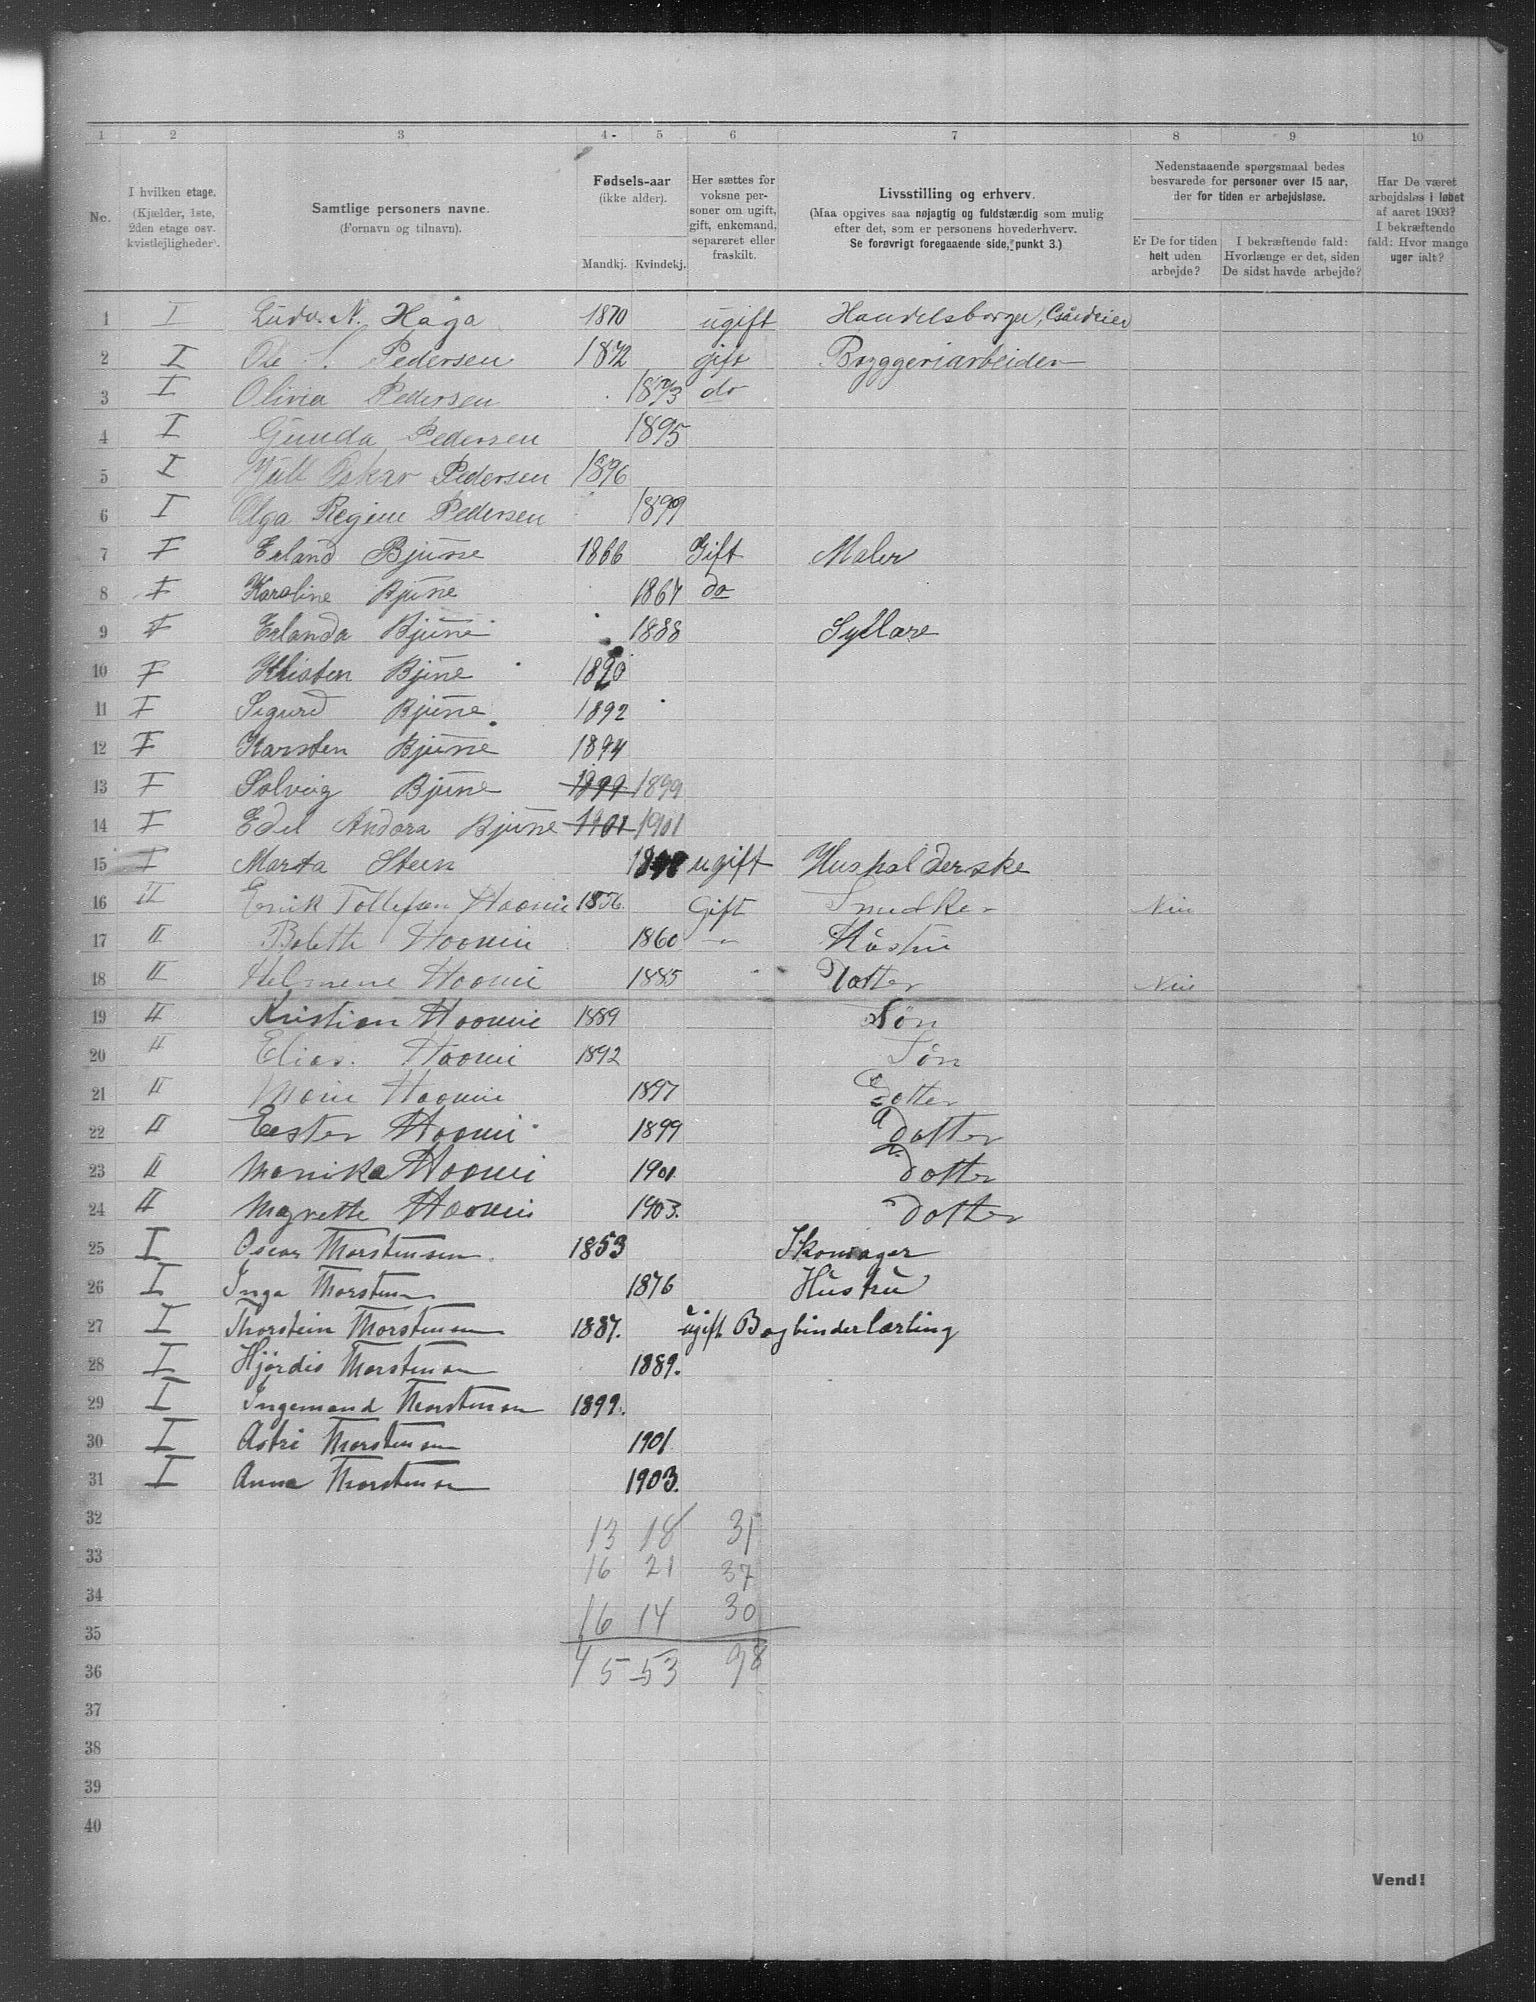 1 2 3 4 5 6 7 8 9 10
No.
I hvilken etage.
(Kjælder, 1ste,
2den etage osv.
kvistlejligheder).
Samtlige personers navne.
(Fornavn og tilnavn).
Fødsels-aar
(ikke alder).
Mandkj. Kvindekj.
Her sættes for
voksne per-
soner om ugift,
gift, enkemand,
separeret eller
fraskilt.
Livsstilling og erhverv.
(Maa opgives saa nøjagtig og fuldstærdig som mulig
efter det, som er personens hovederhverv.
Se forøvrigt foregaaende side, punkt 3.)
Nedenstaaende spørgsmaal bedes
besvarede for personer over 15 aar,
der for tiden er arbejdsløse.
Er De for tiden
helt uden
arbejde?
I bekræftende fald:
Hvorlænge er det, siden
De sidst havde arbejde?
Har De været
arbejdsløs i løbet
af aaret 1903?
I bekræftende
fald: Hvor mange
uger ialt?
1 I Ludv. N. Haga 1870 ugift Handelsborger, Gårdeier
2 I Ole S. Pedersen 1872 gift Bryggeriarbeider
3 I Olivia Pedersen 1873 do
4 I Gunda Pedersen 1895
5 I Oskar Pedersen 1896
6 I Olga Regine Pedersen 1899
7 I Erland Bjune 1866 Gift Maler
8 I Karoline Bjune 1867 do
9 I Erlanda Bjune 1888 Syllære
10 I Kristen Bjune 1890
11 I Sigurd Bjune 1892
12 I Karsten Bjune 1894
13 I Solveig Bjune 1899 1899
14 I Edel Andora Bjune 1901 1901
15 I Marta Steen ugift Husholderske
16 II Erik Tollefsen Haavei 1856 Gift Snedker Nei
17 II Bolette Haavei 1860 -"- Hustru
18 II Helmine Haavei 1885 Datter Nei
19 II Kristian Haavei 1889 Søn
20 II Elias. Haavei 1892 Søn
21 II Marie Haavei 1897 Dotter
22 II Eester Haavei 1899 Dotter
23 II Monika Haavei 1901 Dotter
24 II Magrethe Haavei 1903. Dotter
25 I Oscar Thorstensen. 1853 Skomager
26 I Inga Thorstensen 1876 Hustru
27 I Thorstein Thorstensen 1887. ugift Bogbinderlærling
28 I Hjørdis Thorstensen 1889.
29 I Ingemand Thorstensen 1899.
30 I Astri Thorstensen 1901
31 I Anna Thorstensen 1903.
32 13 18 31
33 16 21 37
34 16 14 30
35
36 45 53 98
37
38
39
40
Vend!